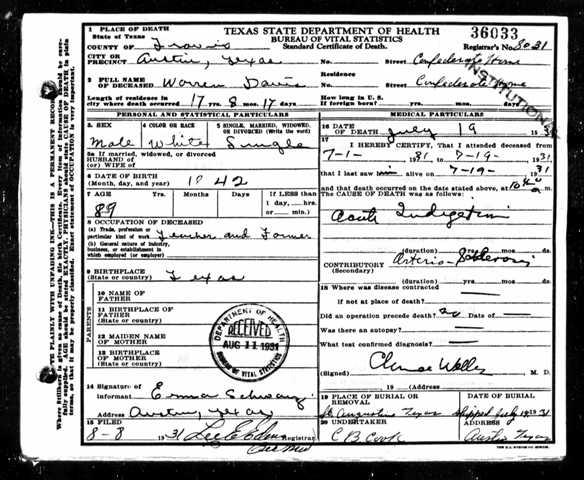 TEXAS STATE DEPARTMENT OF HEALTH
BUREAU OF VITAL STATISTICS
Standard Certificate of Death.
36033
Registrar's No. 3031
1 PLACE OF DEATH
State of Texas
COUNTY OF Travis
CITY OR PRECINCT Austin, Texas No. Street Confederate Home
INSTITUTION
2 FULL NAME OF DECEASED Warren Davis
Residence No. Street Confederate Home
Length of residence in city where death occurred 17 yrs. 8 mos. 17 days
How long in U. S. if foreign born? yrs. mos. days
PERSONAL AND STATISTICAL PARTICULARS
3. SEX Male
4 COLOR OR RACE White
5 SINGLE, MARRIED, WIDOWED, OR DIVORCED (Write the word) Single
5a If married, widowed, or divorced
HUSBAND OF
(or) WIFE OF
6 DATE OF BIRTH (Month, day, and year) 1842
7 AGE Yrs. Months Days If LESS than 1 day, hrs. or min.
89
8 OCCUPATION OF DECEASED
(a) Trade, profession or particular kind of work Teacher and Farmer
(b) General nature of industry, business, or establishment in which employed (or employer)
9 BIRTHPLACE (State or country) Texas
PARENTS
10 NAME OF FATHER
11 BIRTHPLACE OF FATHER (State or country)
12 MAIDEN NAME OF MOTHER
13 BIRTHPLACE OF MOTHER (State or country)
DEPARTMENT OF HEALTH
RECEIVED
AUG 11 1931
BUREAU OF VITAL STATISTICS
14 Signature of Informant Erma
Address Austin, Texas
15 FILED 8-8 1931 Registrar
MEDICAL PARTICULARS
16 DATE OF DEATH July 19 1931
17 I HEREBY CERTIFY, That I attended deceased from
7-1- 1931 7-19- 1931
that I last saw him alive on 7-19- 1931
and that death occurred on the date stated above, at 10
The CAUSE OF DEATH was as follows:
Acute Indigestion
(duration) yrs. mos. ds.
CONTRIBUTORY (Secondary) Arterio-Sclerosis
(duration) yrs. mos. ds.
18 Where was disease contracted
If not at place of death?
Did an operation precede death? no Date of
Was there an autopsy?
What test confirmed diagnosis?
(Signed) M. D.
19 (Address
19 PLACE OF BURIAL OR REMOVAL
San Augustine Texas
DATE OF BURIAL
Shipped July 19 1931
20 UNDERTAKER
C B Cook
ADDRESS
Austin Texas